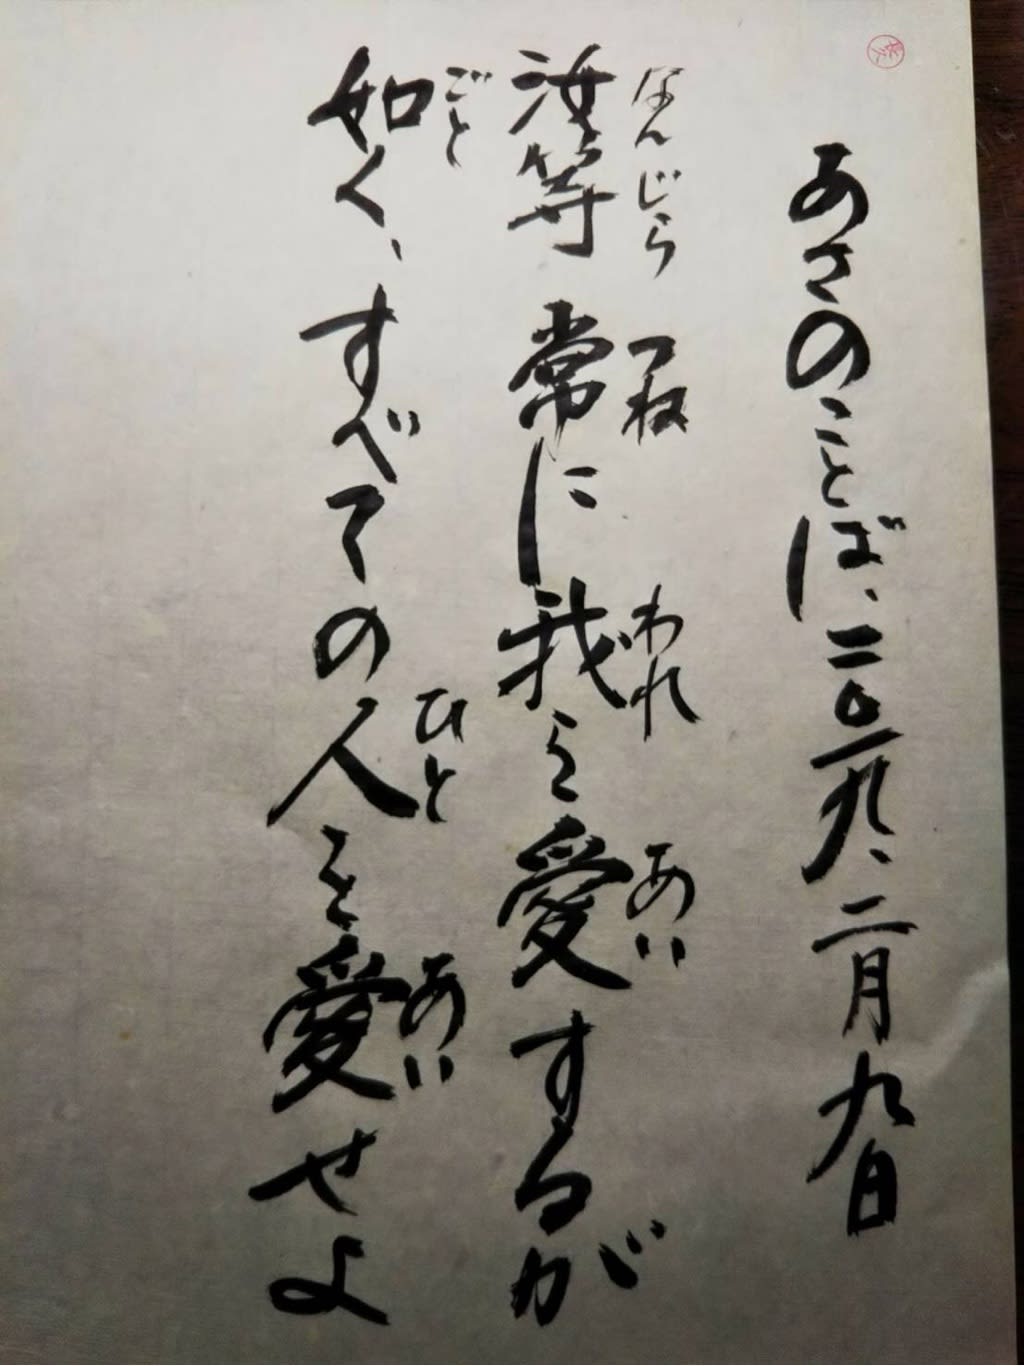 あさのことば、二〇一九、二月九日
汝等常に我を愛するが
なんじら つね われ あい
如く、すべての人を愛せよ
ごと ひと あい